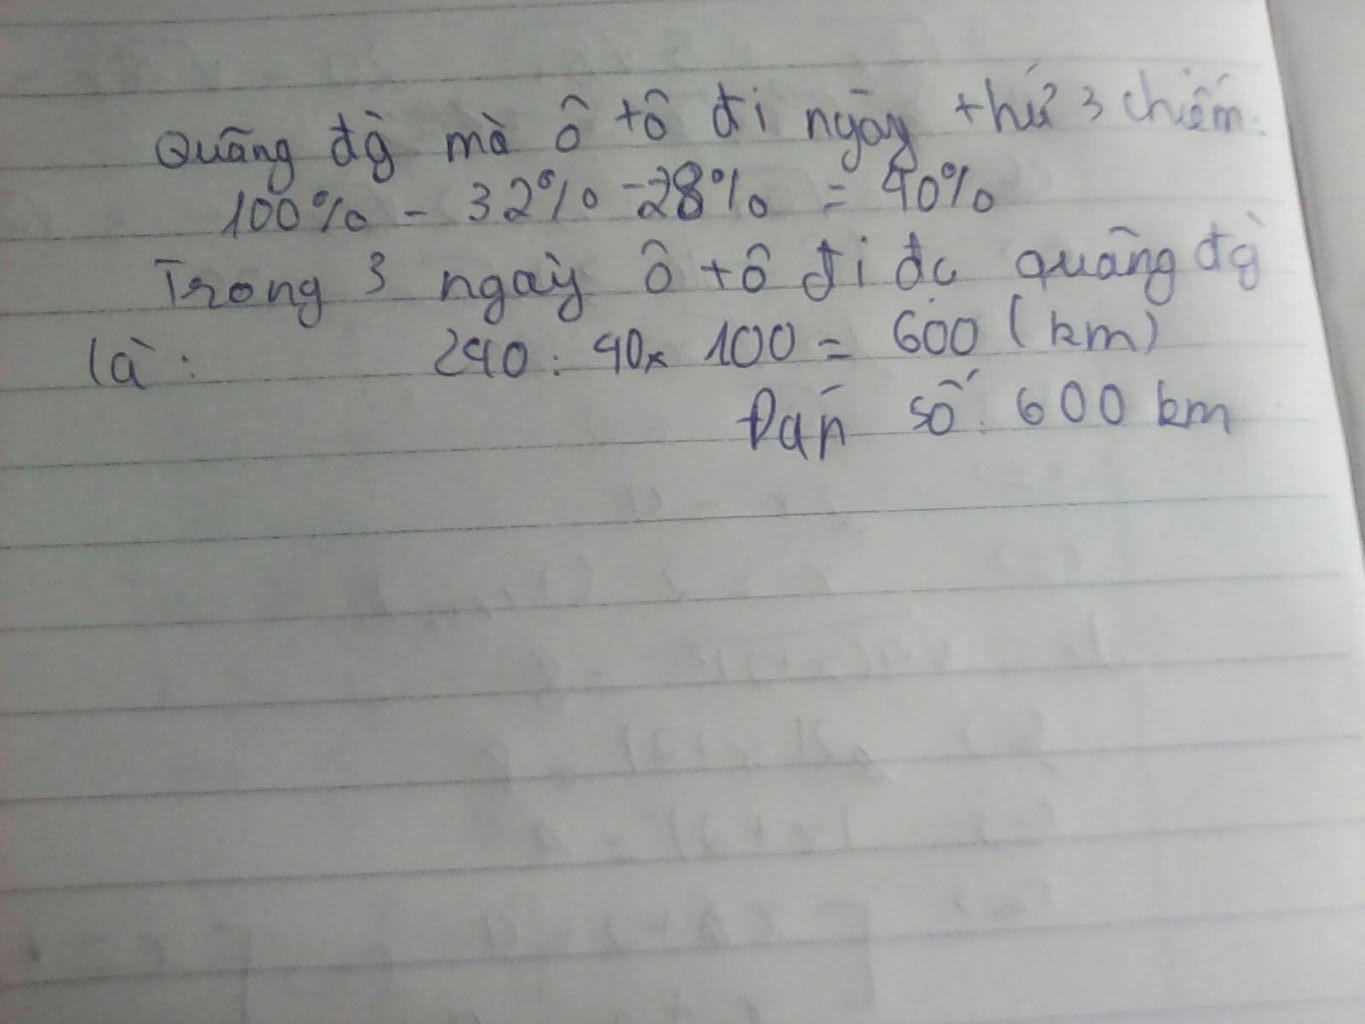 Quãng đg̀ mà ô tô đi ngày thứ 3 chiếm.
100% - 32% - 28% = 40%
Trong 3 ngày ô tô đi đc quãng đg̀
là : 240 : 40 x 100 = 600 (km)
Đáp số : 600 km